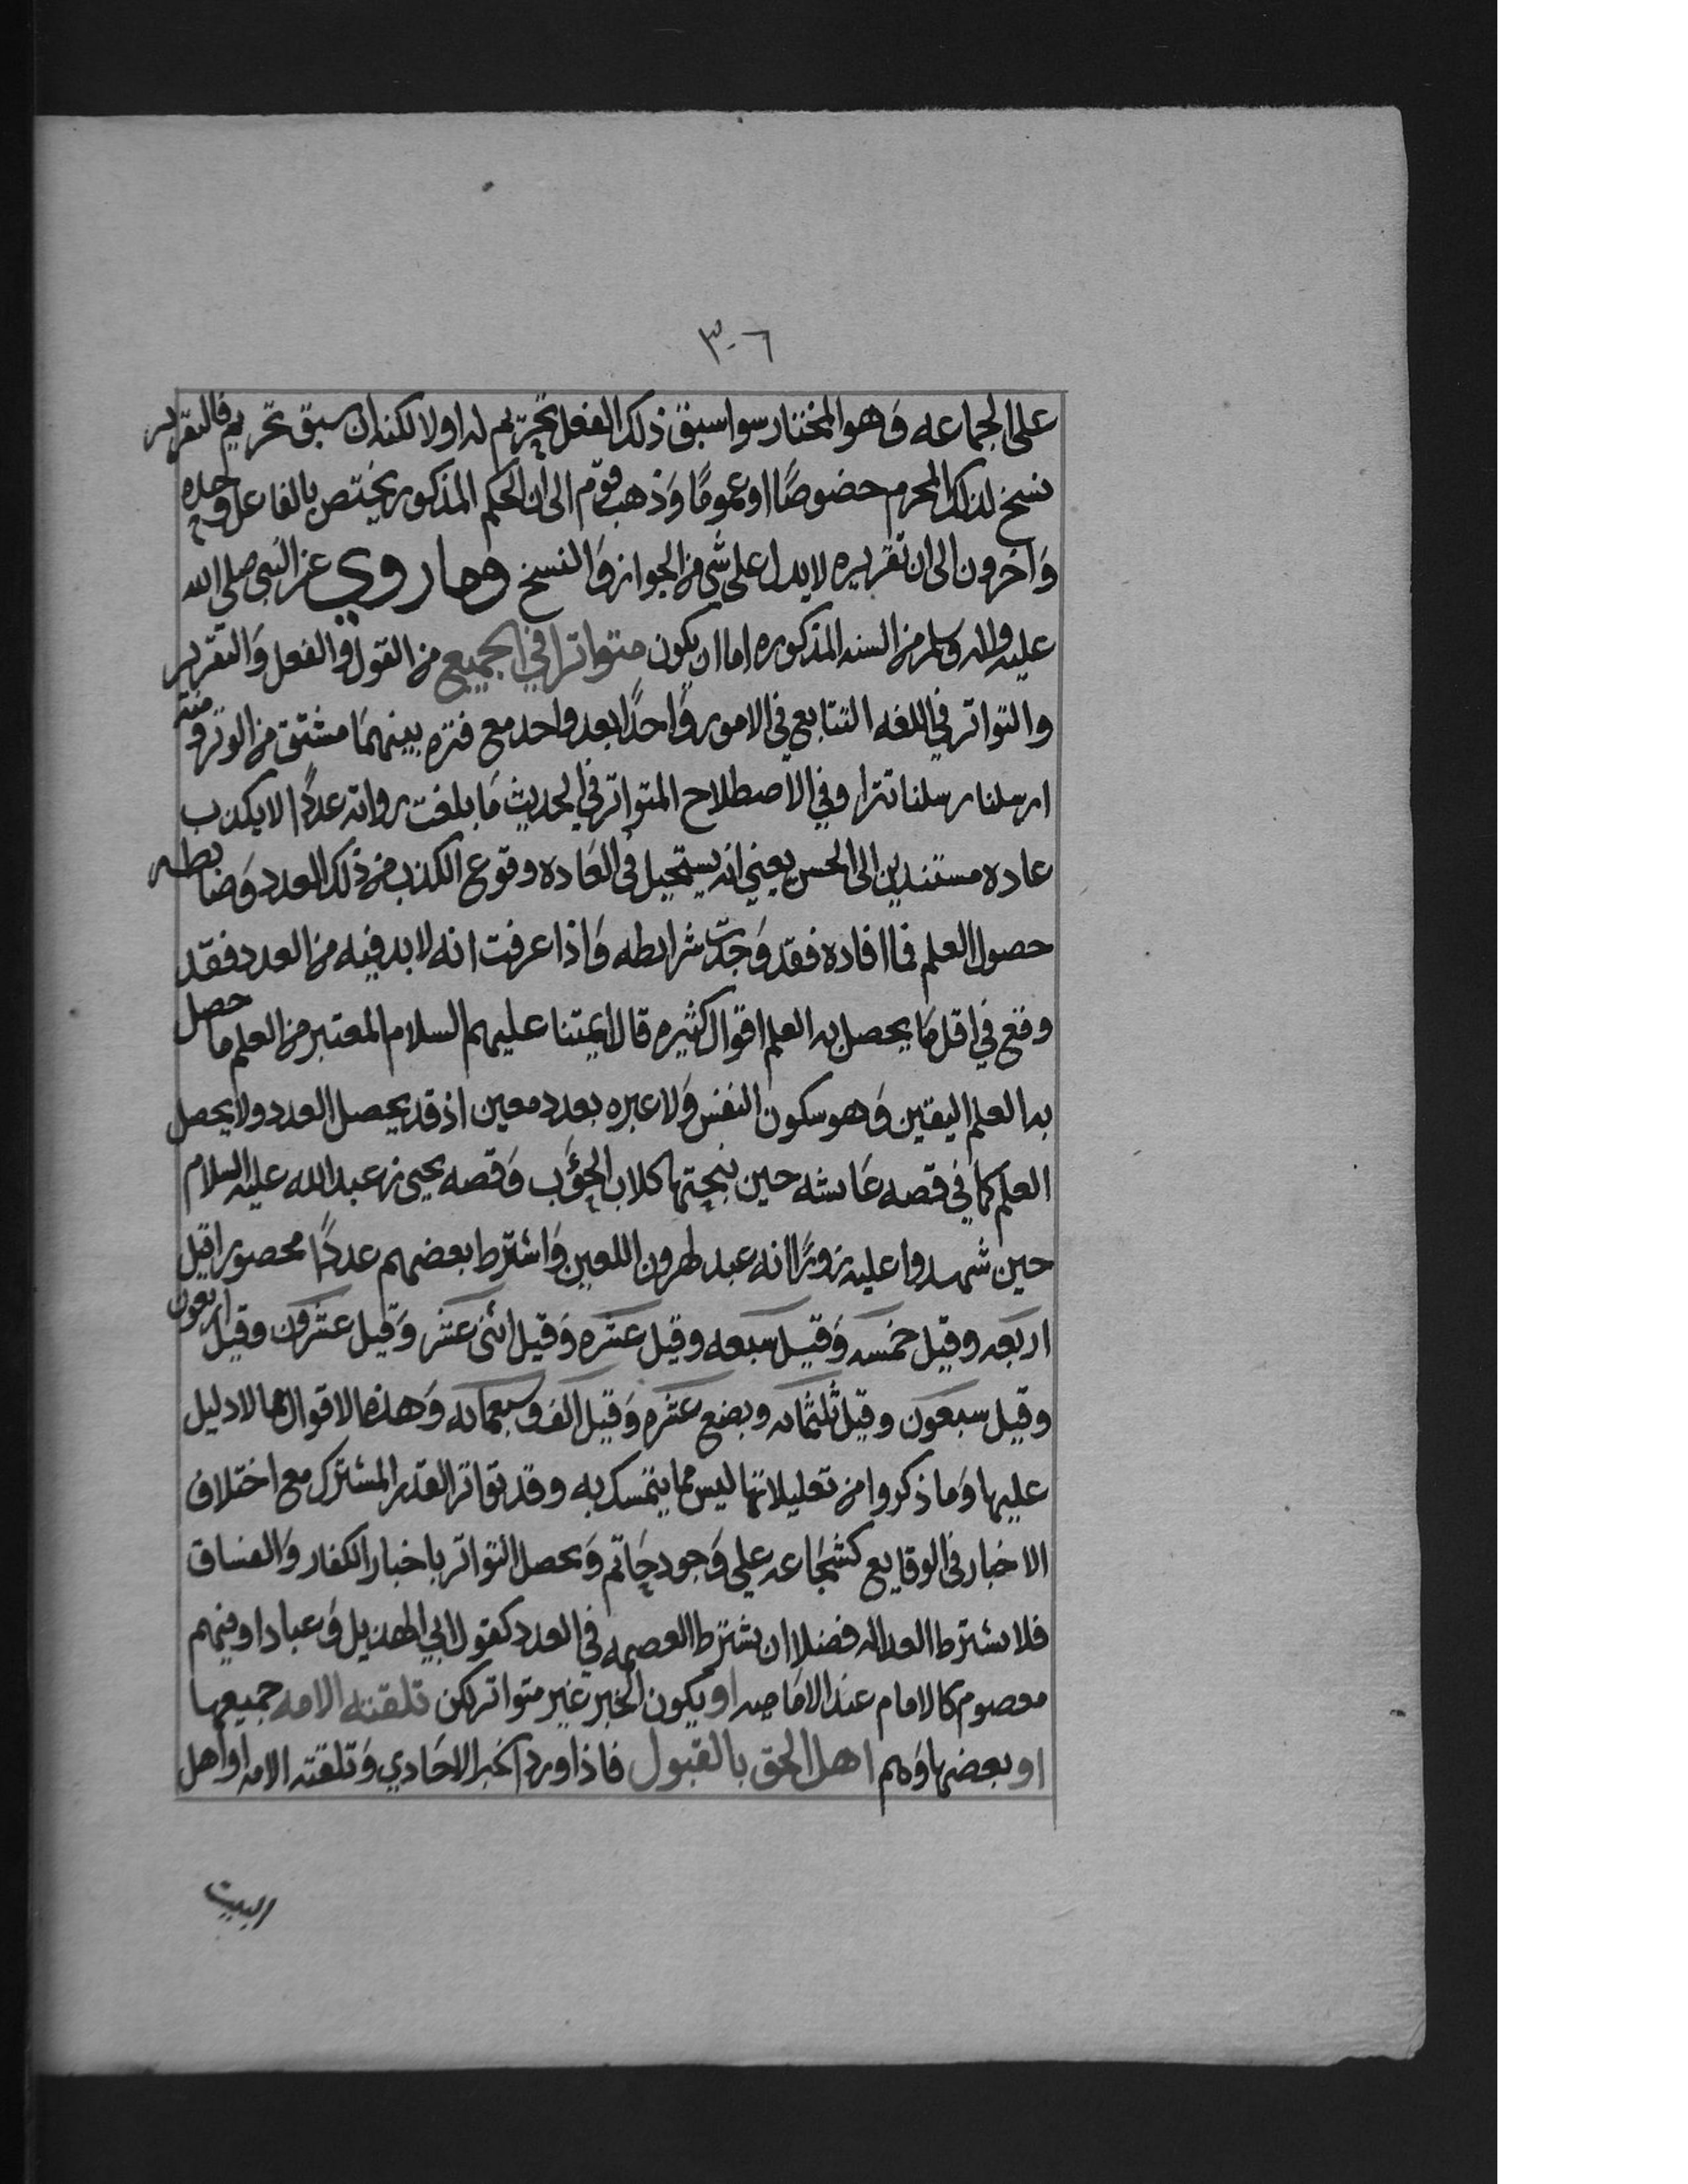 ٣٠٦
على الجماعه وَهو المختار سوا سبق ذلك الفعل تحريم له اولا لكنه ان سبق تحريم فالتقرير
نسخ لذلك المحرم خصوصًا اوعمومًا وَذهب قوم الى ان الحكم المذكور يختص بالفاعل وحده
وَاخرون الى ان تقريره لايدل على شي من الجواز وَالنسخ وما روي عن النبي صلى الله
عليه واله وسلم من السنه المذكوره اما ان يكون متواترا في الجميع من القول وَالفعل وَالتقرير
والتواتر في اللغه التتابع في الامور وَاحدًا بعد واحد مع فتره بينهمَا مشتق من الوتر ومنه
ارسلنا رسلنا تترا وفي الاصطلاح المتواتر في الحديث مَا بلغت رواته عددًا لا يكذب
عاده مستندين الى الحس يعني انه يستحيل في العَاده وقوع الكذب من ذلك العدد وَضابطه
حصول العلم فما افاده فقد وَجدت شرايطه وَاذا عرفت انه لا بد فيه من العدد فقد
وقع في اقل مَا يحصل به العلم اقوال كثيره قال ايمتنا عليهم السلام المعتبر من العلم ما حصل
به العلم اليقين وَهو سكون النفس وَلا عبره بعدد معين اذ قد يحصل العدد ولا يحصل
العلم كما في قصه عَايشه حين نبحتها كلاب الحؤَب وَقصه يحيى بن عبدالله عليه السلام
حين شهدوا عليه زورًا انه عبد لهرون اللعين وَاشترط بعضهم عددًا محصورا قيل
اربعه وقيل خمسه وَقيل سبعه وقيل عشره وَقيل اثنى عشر وَقيل عشرون وقيل اربعون
وقيل سبعون وقيل ثلثمائه وبضع عشره وَقيل الف وسبعمائه وَهذه الاقوال مما لا دليل
عليها وَما ذكروا من تعليلاتها ليس مما يتمسك به وقد تواتر القدر المشترك مع اختلاف
الاخبار في الوقايع كشجَاعه علي وَجود حَاتم وَيحصل التواتر باخبار الكفار وَالفساق
فلا يشترط العداله فضلا ان يشترط العصمه في العدد كقول ابي الهذيل وَعباد او فيهم
معصوم كالامام عند الامَاميه او يكون الخبر غير متواتر لكن تلقته الامه جميعها
او بعضها وَهم اهل الحق بالقبول فاذا ورد الخبر الاحَادي وَتلقته الامه او اهل
البيت